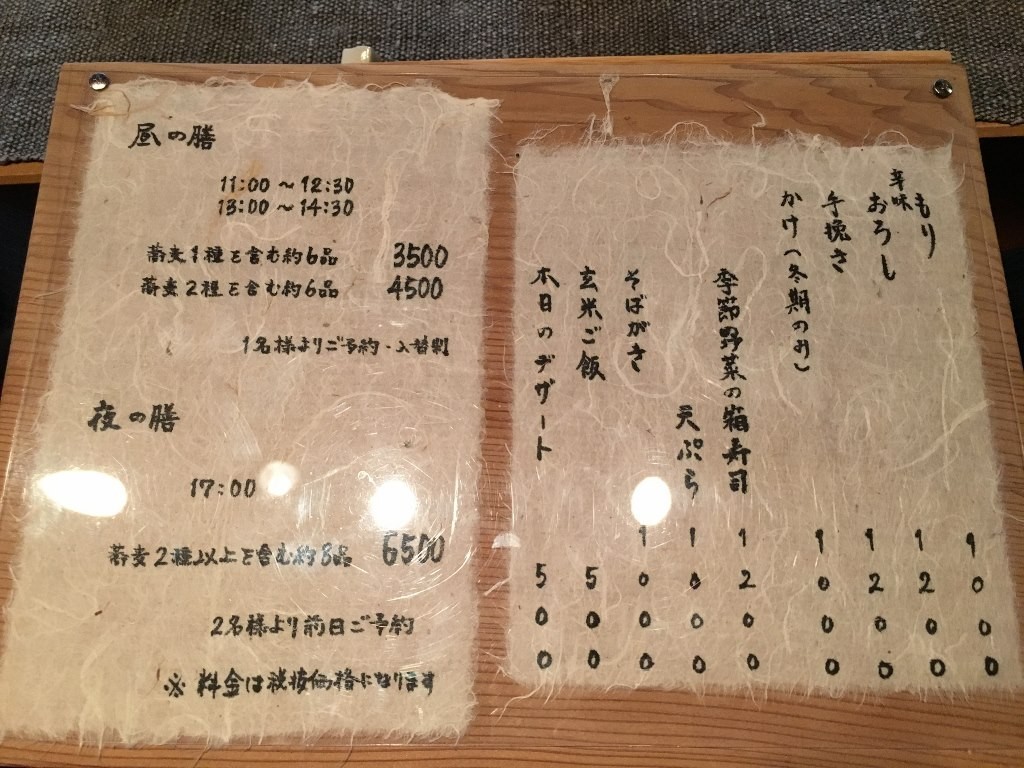 昼の膳
11:00 ～ 12:30
13:00 ～ 14:30
蕎麦1種を含む約6品 3500
蕎麦2種を含む約6品 4500
1名様よりご予約・入替制
夜の膳
17:00
蕎麦2種以上を含む約8品 6500
2名様より前日ご予約
※ 料金は税抜価格になります
もり 1000
辛味おろし 1200
手挽き 1200
かけ(冬期のみ) 1000
季節野菜の箱寿司 1200
天ぷら 1000
そばがき 1000
玄米ご飯 500
本日のデザート 500